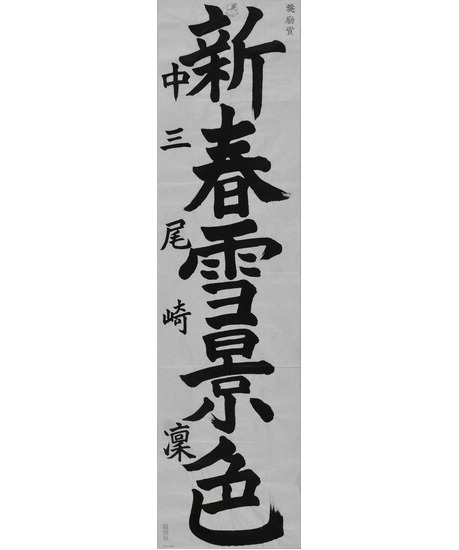 奨励賞
新春雪景色
中三 尾崎 凜